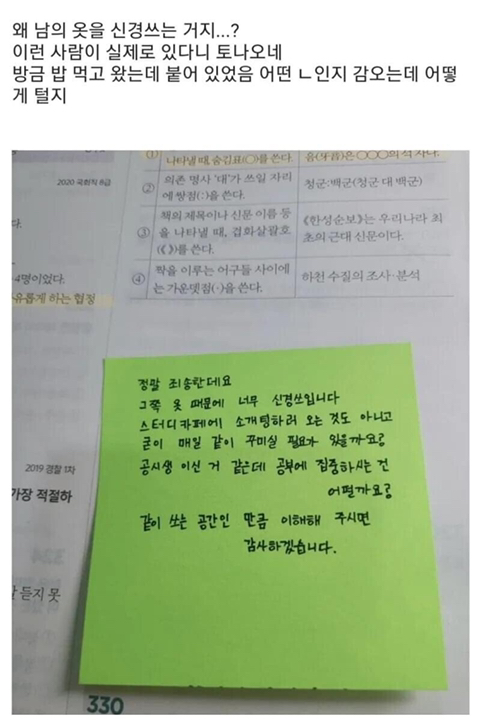 왜 남의 옷을 신경쓰는 거지...?
이런 사람이 실제로 있다니 토나오네
방금 밥 먹고 왔는데 붙어 있었음 어떤 ㄴ인지 감오는데 어떻
게 털지
① 나타낼 때, 숨김표(○)를 쓴다. 음(牙音)은 ○○○의 석 자다.
2020 국회직 8급
② 의존 명사 '대'가 쓰일 자리
에 쌍점(:)을 쓴다.
청군:백군(청군 대 백군)
③ 책의 제목이나 신문 이름 등
을 나타낼 때, 겹화살괄호
(《 》)를 쓴다.
《한성순보》는 우리나라 최
초의 근대 신문이다.
④ 짝을 이루는 어구들 사이에
는 가운뎃점(·)을 쓴다.
하천 수질의 조사·분석
다.
4명이었다.
유롭게 하는 협정
정말 죄송한데요
그쪽 옷 때문에 너무 신경쓰입니다
스터디카페에 소개팅하러 오는 것도 아니고
굳이 매일 같이 꾸미실 필요가 있을까요?
공시생 이신 거 같은데 공부에 집중하시는 건
어떨까요?
같이 쓰는 공간인 만큼 이해해 주시면
감사하겠습니다.
2019 경찰 1차
가장 적절하
듣지 못
330